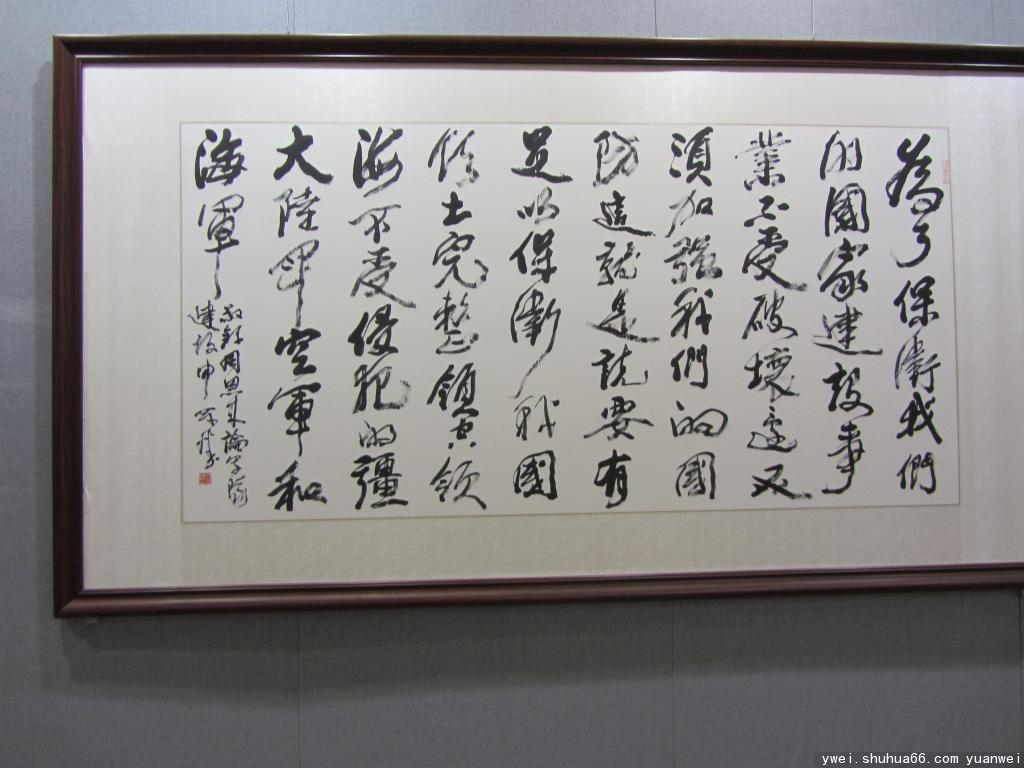 為了保衛我們
的國家建設事
業不受破壞還必
須加強我們的國
防這就是說要有
足以保衛我國
領土完整領空領
海不受侵犯的彊
大陸軍空軍和
海軍
敬錄周恩來論軍隊
建設
ywei.shuhua66.com yuanwei